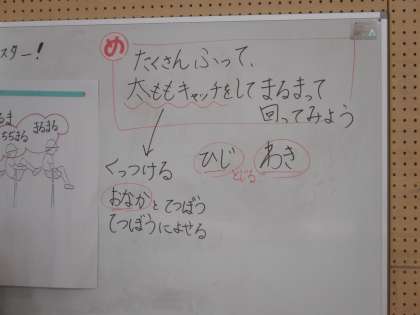 スター!
め
たくさんふって、
太ももキャッチをしてまるまって
回ってみよう
まるまる
くっつける
ひじ とじる わき
おなかとてつぼう
てつぼうによせる